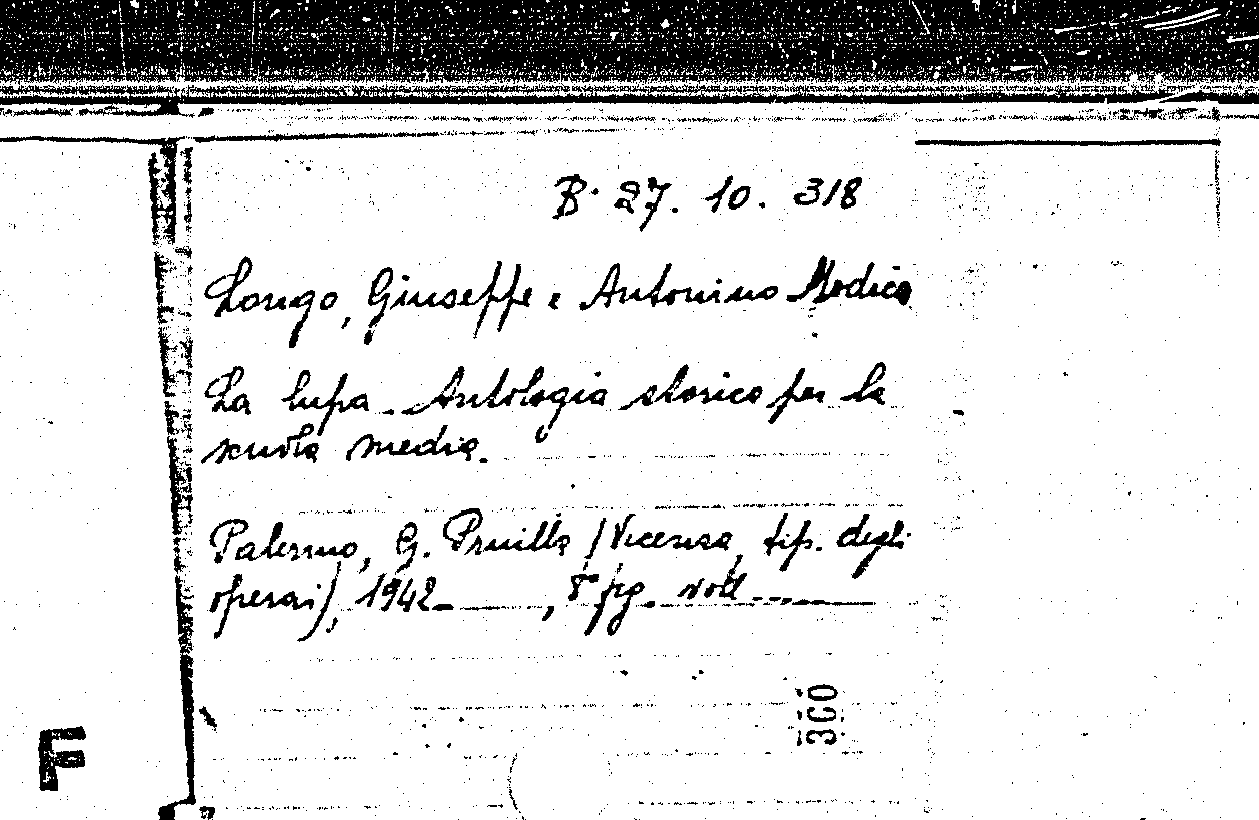 B. 27. 10. 318
Longo, Giuseppe e Antonino Modica
La lupa - Antologia storica per la
scuola media.
Palermo, G. Prinilla (Vicenza, tip. degli
operai), 1942 , 8° pg. voll
360
F